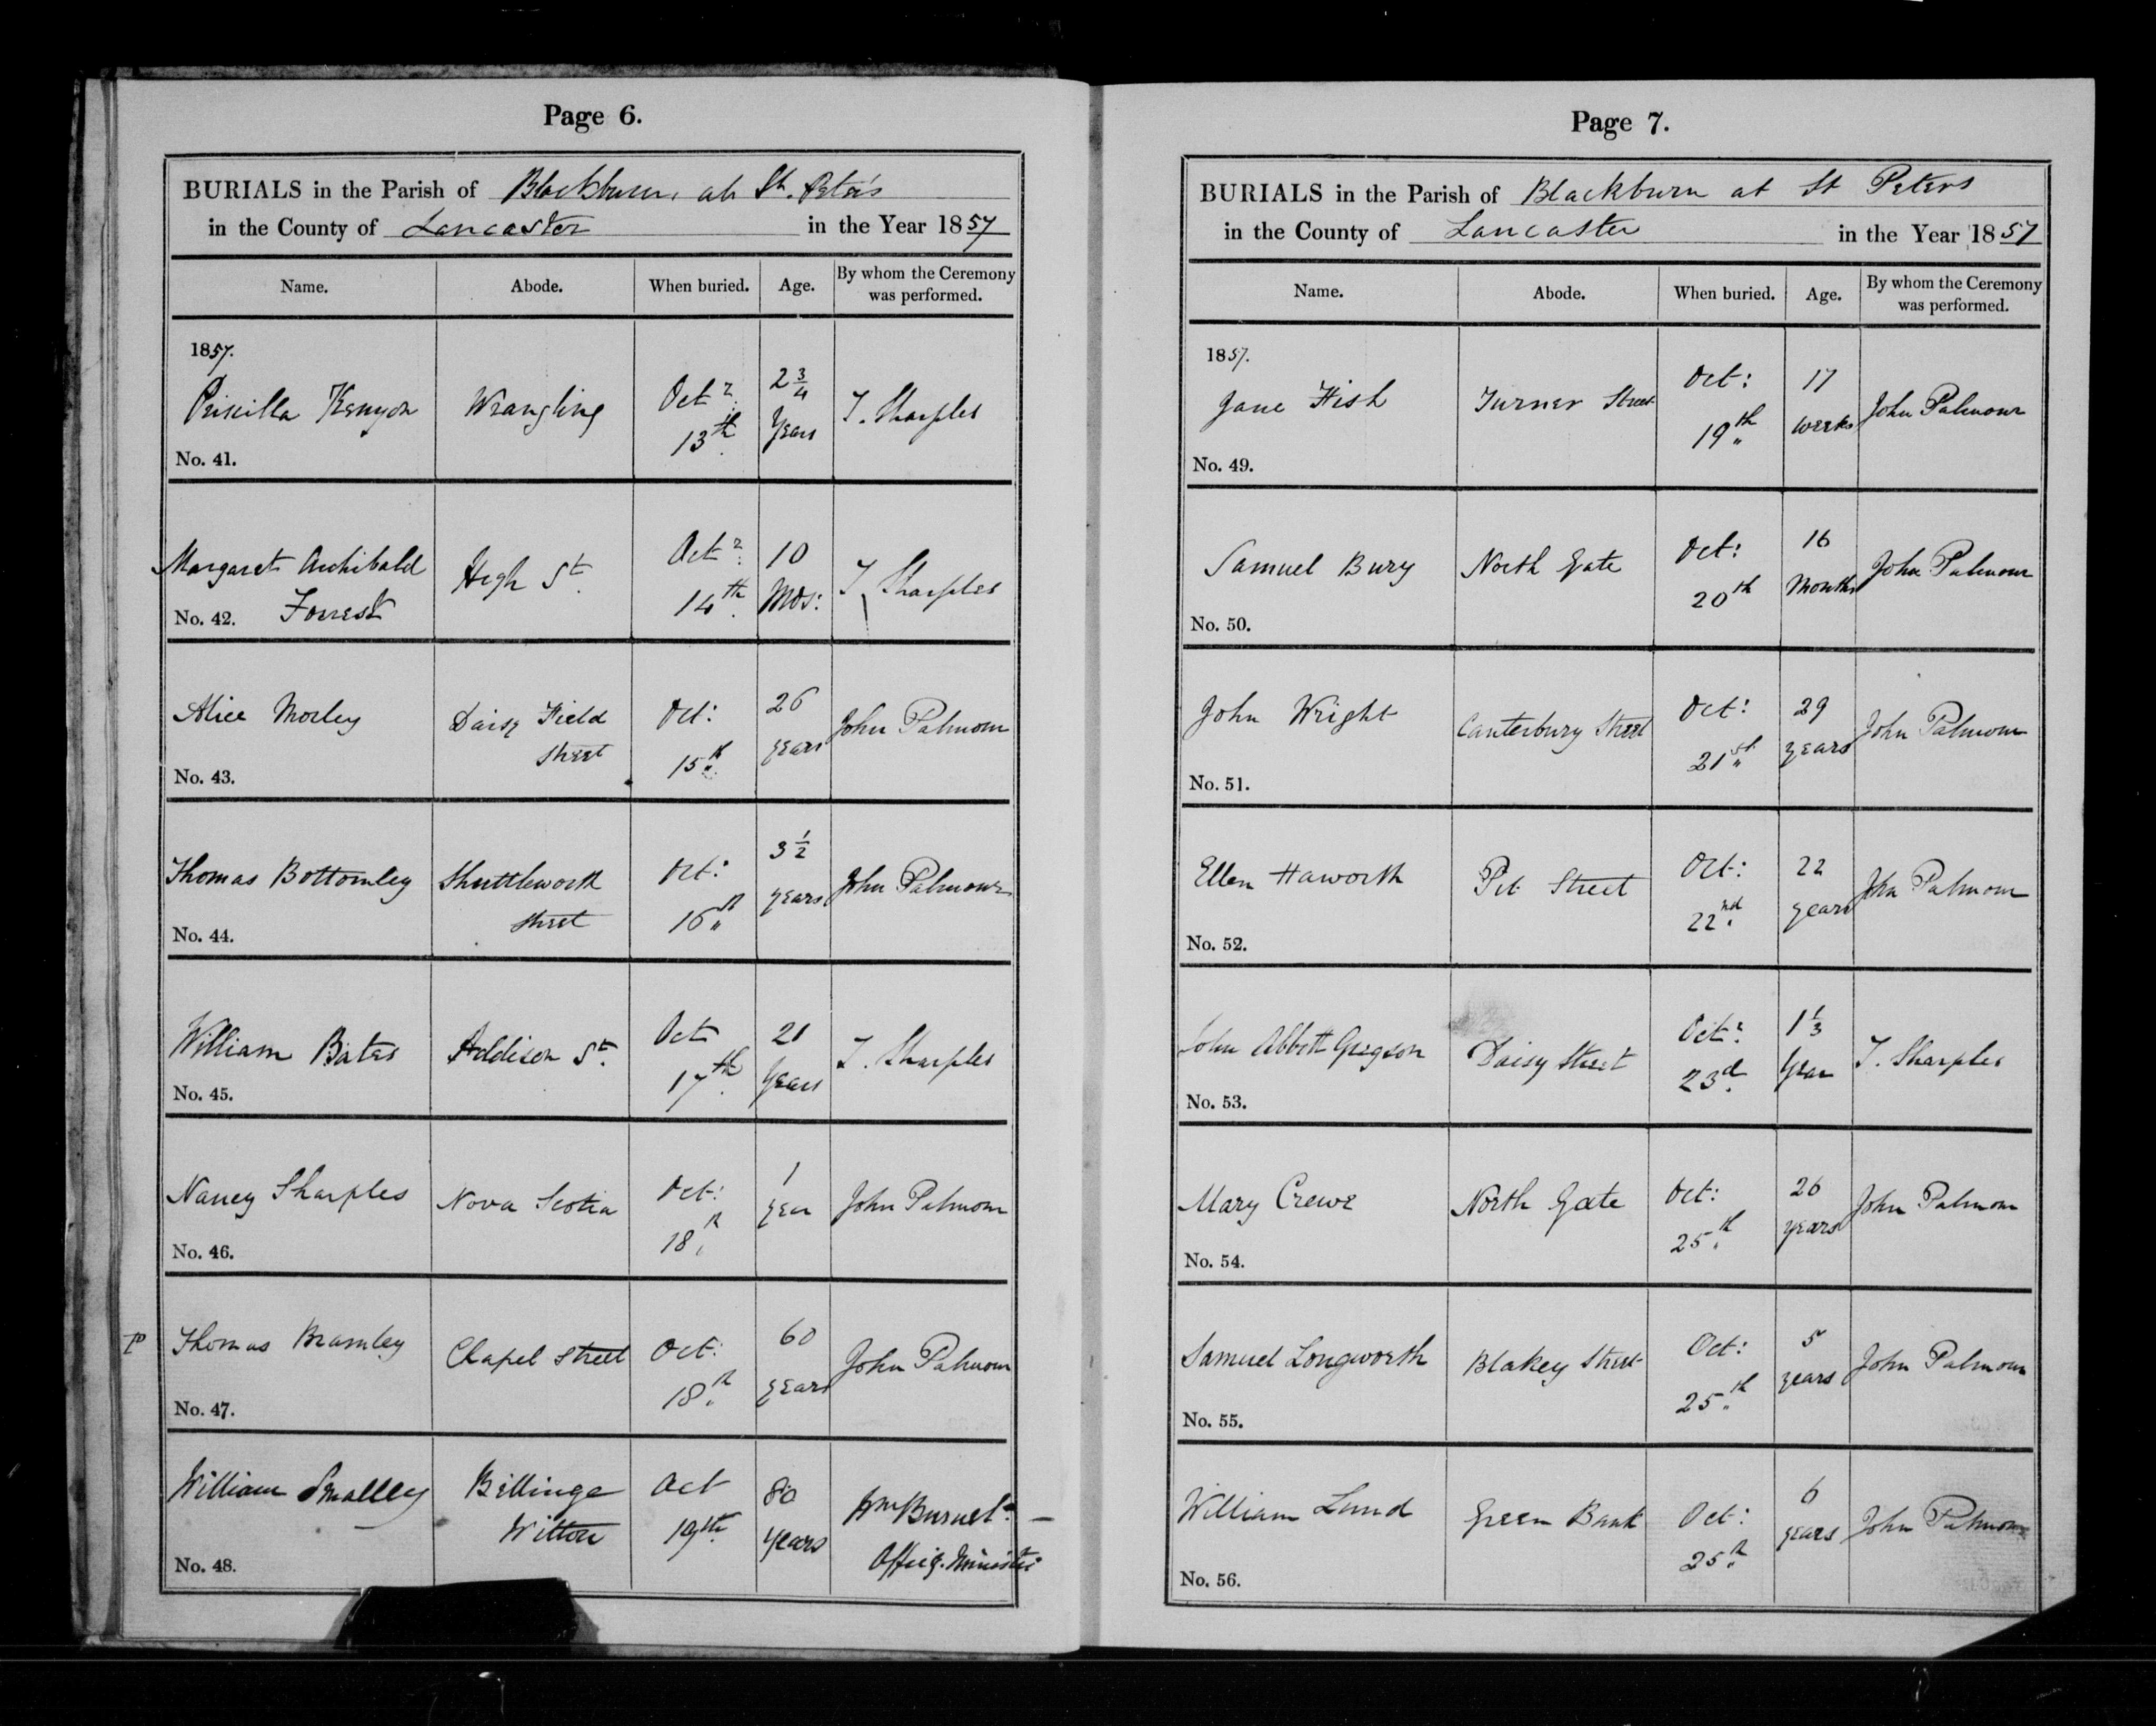 Page 6.
BURIALS in the Parish of Blackburn, at St. Peter's
in the County of Lancaster in the Year 1857
Name. Abode. When buried. Age. By whom the Ceremony was performed.
1857.
Priscilla Kenyon Wrangling Octr. 13th. 2 3/4 Years T. Sharples
No. 41.
Margaret Archibald Forrest High St. Octr. 14th. 10 Mos: T. Sharples
No. 42.
Alice Morley Daisy Field Street Oct: 15th 26 years John Palmour
No. 43.
Thomas Bottomley Shuttleworth Street Oct: 16th 3 1/2 years John Palmour
No. 44.
William Bates Addison St. Oct 17th. 21 Years T. Sharples
No. 45.
Nancy Sharples Nova Scotia Oct: 18th 1 year John Palmour
No. 46.
Thomas Bramley Chapel Street Oct: 18th 60 years John Palmour
No. 47.
William Smalley Billinge Witton Oct 19th. 80 years Wm Burnet Offig. Minister
No. 48.
Page 7.
BURIALS in the Parish of Blackburn at St Peters
in the County of Lancaster in the Year 1857
Name. Abode. When buried. Age. By whom the Ceremony was performed.
1857.
Jane Fish Turner Street Oct: 19th 17 weeks John Palmour
No. 49.
Samuel Bury North Gate Oct: 20th 16 Months John Palmour
No. 50.
John Wright Canterbury Street Oct: 21st 29 years John Palmour
No. 51.
Ellen Haworth Pit Street Oct: 22nd 22 years John Palmour
No. 52.
John Abbott Gregson Daisy Street Octr. 23d. 1 1/3 Year T. Sharples
No. 53.
Mary Crewe North Gate Oct: 25th 26 years John Palmour
No. 54.
Samuel Longworth Blakey Street Oct: 25th 5 years John Palmour
No. 55.
William Lund Green Bank Oct: 25th 6 years John Palmour
No. 56.